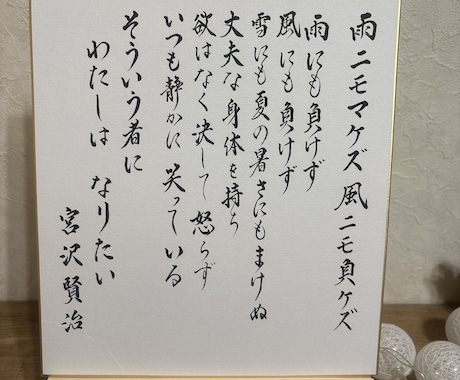 雨ニモマケズ 風ニモ負ケズ
雨にも負けず
風にも負けず
雪にも夏の暑さにもまけぬ
丈夫な身体を持ち
欲はなく決して怒らず
いつも静かに笑っている
そういう者に
わたしは なりたい
宮沢賢治